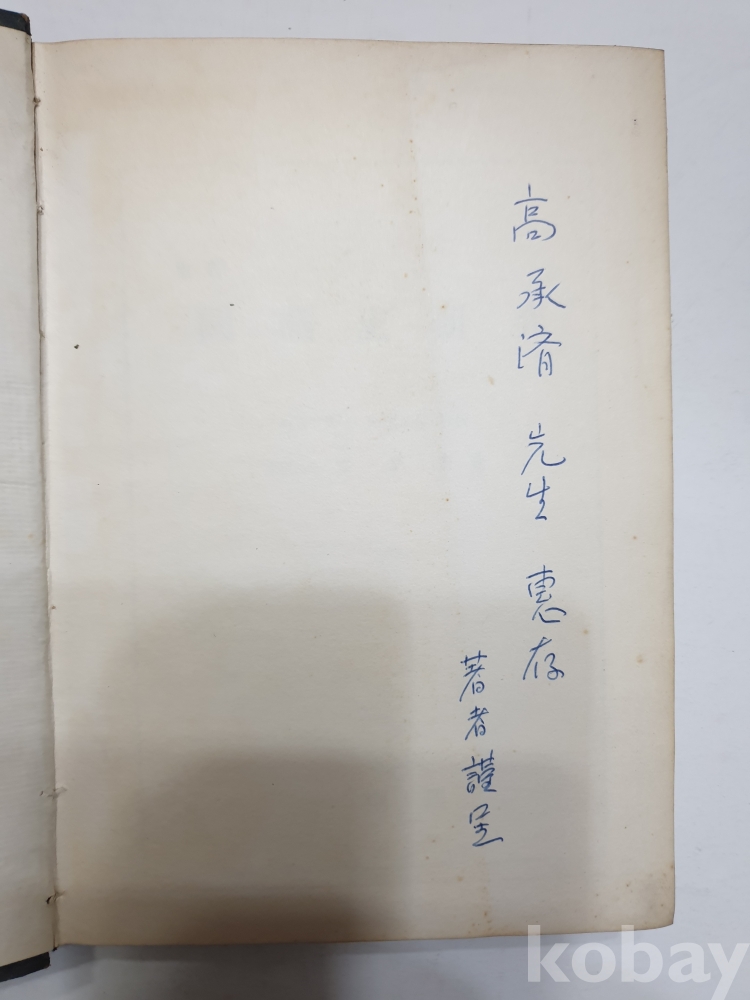 高承濟 先生 惠存
著者謹呈
kobay